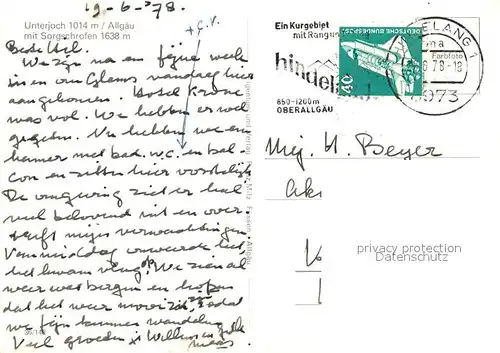 19-6-'78.
Unterjoch 1014 m / Allgäu
mit Sorgschrofen 1638 m
+ T.V.
Beste Wil.
We zijn na een fijne week
in en om Glems vandaag hier
aangekomen. Hotel Krone
was vol. We hebben er wel
gegeten. Nu hebben we een
kamer met bad, w.c. en bal-
con en zitten hier vorstelijk
De omgeving ziet er heel
veel belovend uit en over-
treft mijn verwachtingen.
Vanmiddag onweerde het,
het kwam vlug op. We zien al
weer wat bergen en hopen
dat het weer mooi is, zodat
we fijn kunnen wandelen
Veel groeten v Willem en
Ein Kurgebiet
mit Rang
hindel
850-1200m
OBERALLGÄU
DEUTSCHE BUNDESPOST
40
ELANG 1
78-18
8973
Mej. H. Beyer
privacy protection
Datenschutz